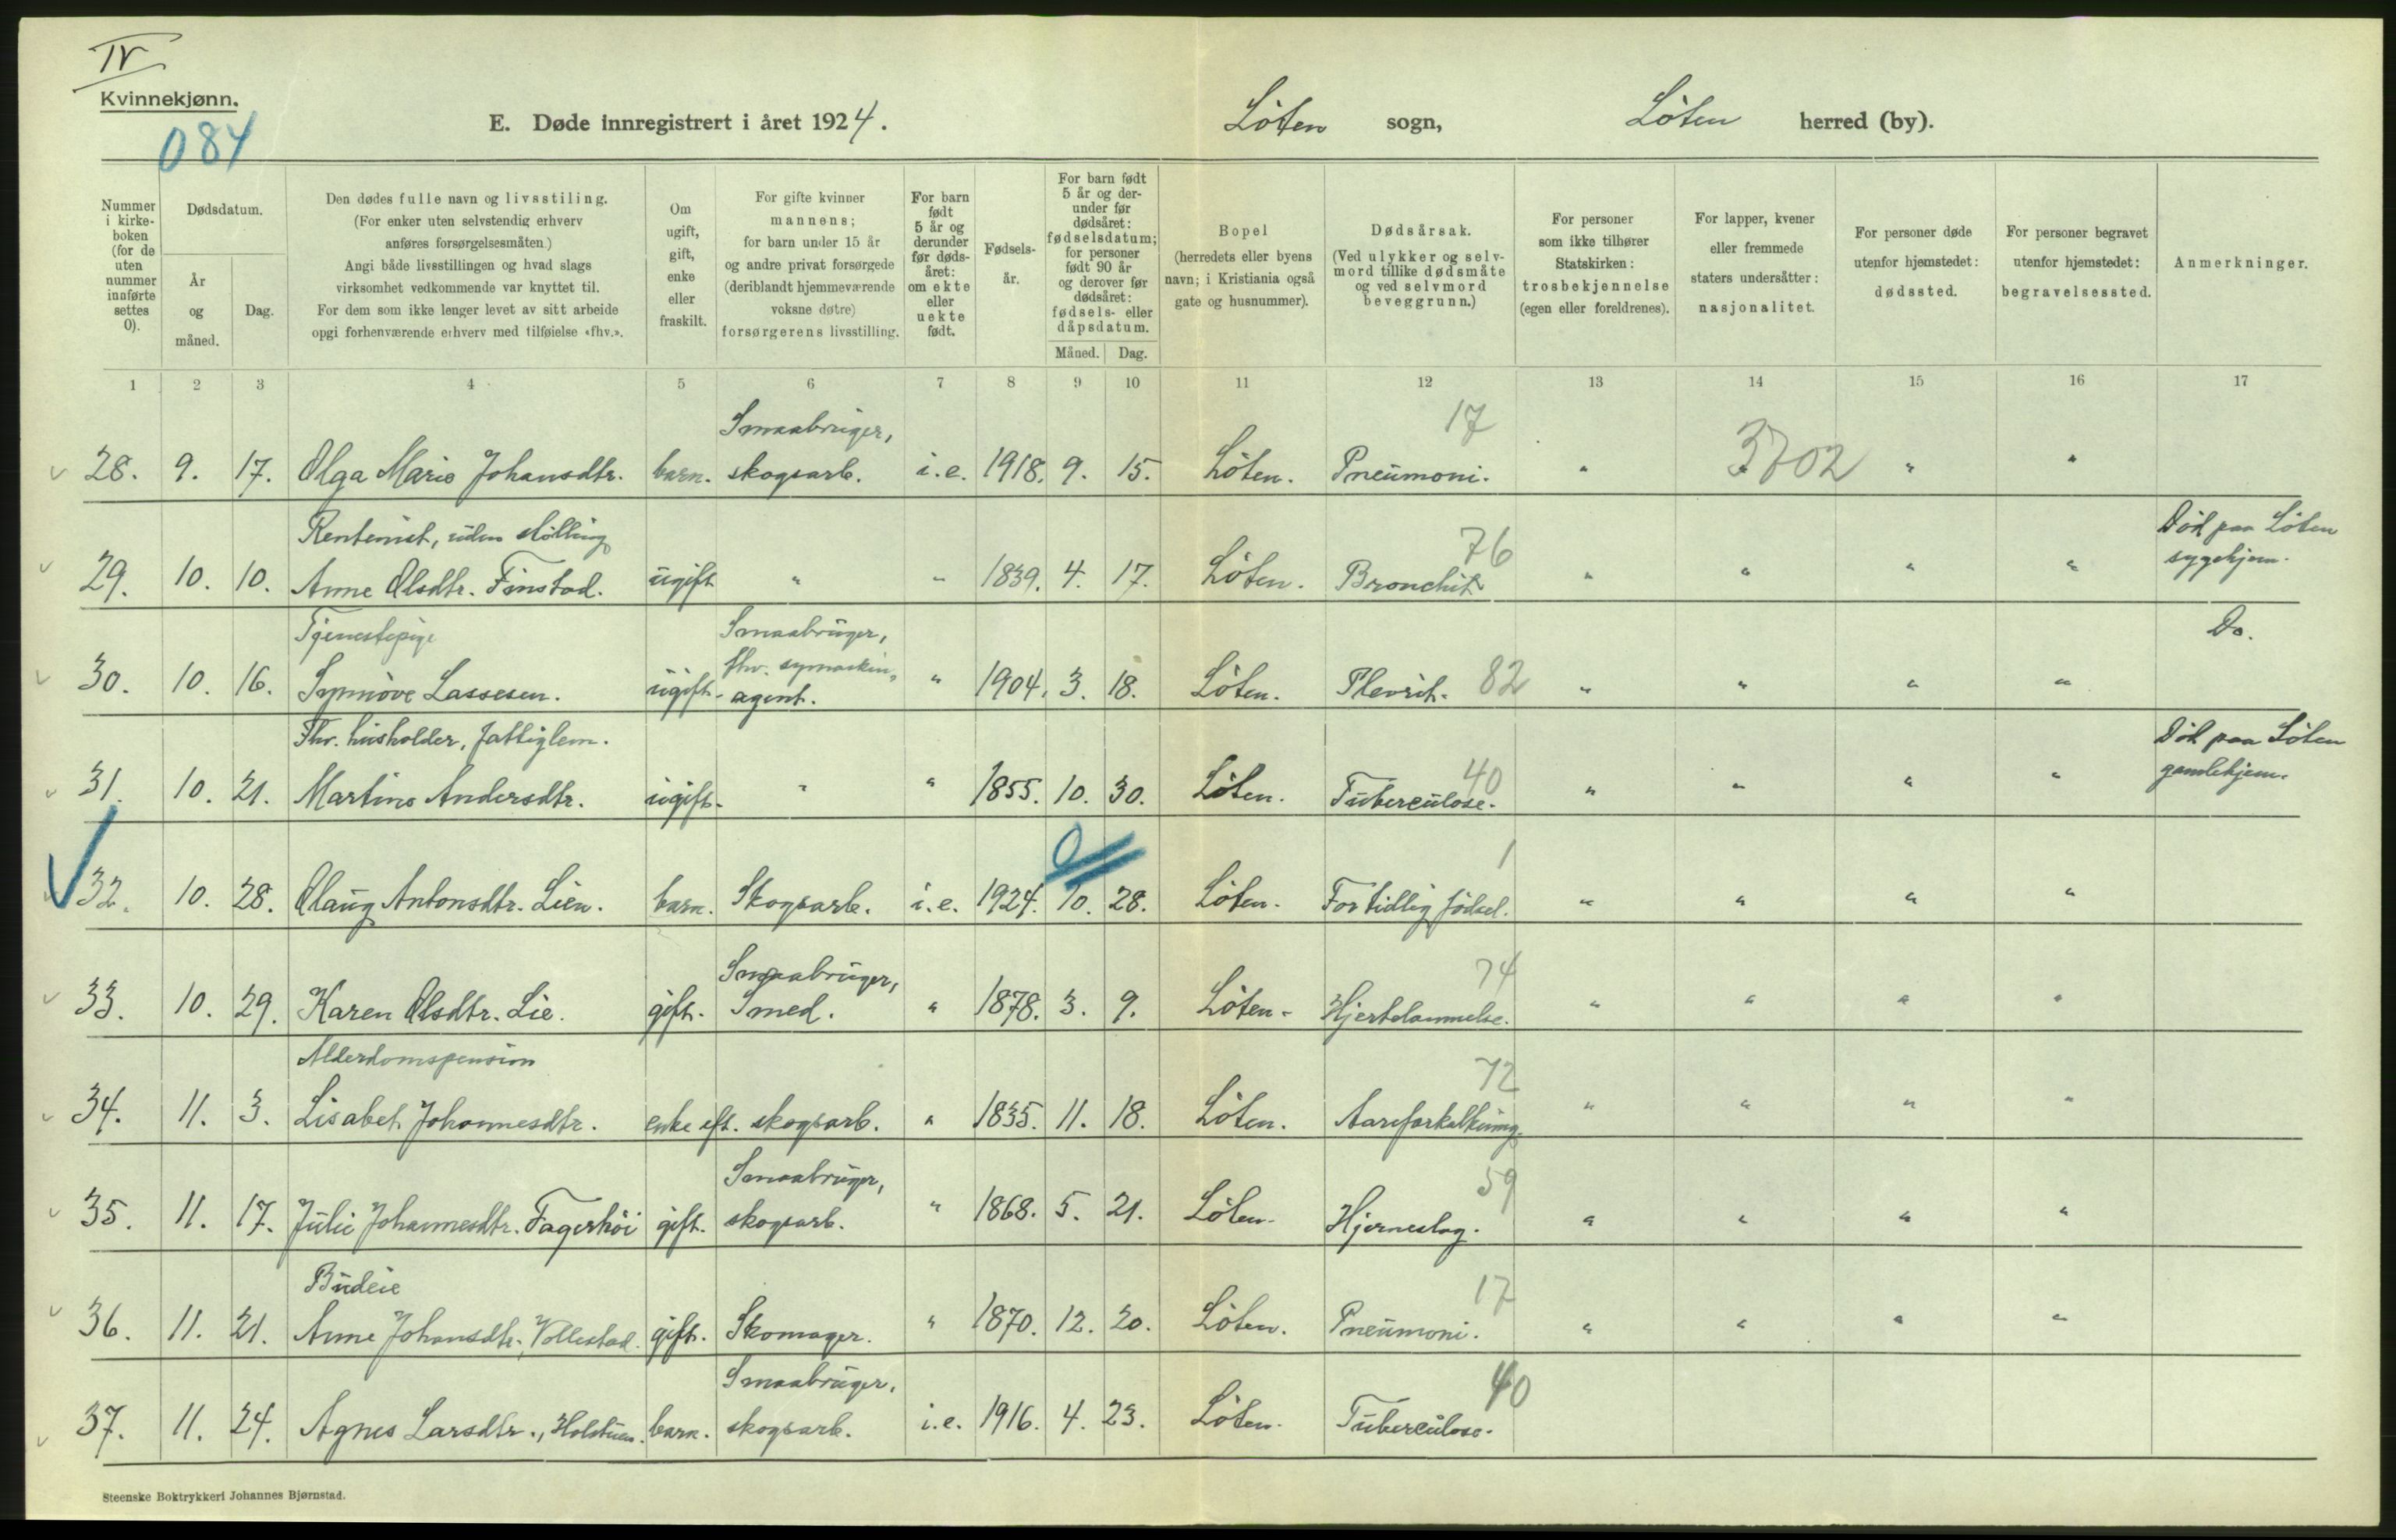 IV
Kvinnekjønn.
084
E. Døde innregistrert i året 1924. Löten sogn, Löten herred (by).
Nummer i kirke-boken (for de uten nummer innførte settes 0).
Dødsdatum.
År og måned.
Dag.
Den dødes fulle navn og livsstiling.
(For enker uten selvstendig erhverv
anføres forsørgelsesmåten.)
Angi både livsstillingen og hvad slags
virksomhet vedkommende var knyttet til.
For dem som ikke lenger levet av sitt arbeide
opgi forhenværende erhverv med tilføielse «fhv.».
Om ugift, gift, enke eller fraskilt.
For gifte kvinner
mannens;
for barn under 15 år
og andre privat forsørgede
(deriblandt hjemmeværende
voksne døtre)
forsørgerens livsstilling.
For barn født 5 år og derunder før døds-året: om ekte eller uekte født.
Fødsels-år.
For barn født 5 år og der-under før dødsåret: fødselsdatum; for personer født 90 år og derover før dødsåret: fødsels- eller dåpsdatum.
Måned. Dag.
Bopel
(herredets eller byens
navn; i Kristiania også
gate og husnummer).
Dødsårsak.
(Ved ulykker og selv-
mord tillike dødsmåte
og ved selvmord
beveggrunn.)
For personer
som ikke tilhører
Statskirken:
trosbekjennelse
(egen eller foreldrenes).
For lapper, kvener
eller fremmede
staters undersåtter:
nasjonalitet.
For personer døde
utenfor hjemstedet:
dødssted.
For personer begravet
utenfor hjemstedet:
begravelsessted.
Anmerkninger.
1 2 3 4 5 6 7 8 9 10 11 12 13 14 15 16 17
Smaabruger, 17
28. 9. 17. Olga Marie Johansdtr. barn. skogsarb. i.e. 1918. 9. 15. Löten. Pneumoni. " 3702 " "
Rentenist, uden stilling 76 Död paa Löten
29. 10. 10. Anne Olsdtr. Finstad. ugift " " 1839. 4. 17. Löten. Bronchit " " " " sygehjem.
Tjenestepige Smaabruger, Do.
fhv. symaskin-
30. 10. 16. Synnöve Lassesen. ugift. agent. " 1904. 3. 18. Löten. Plevrit. 82 " " " "
Fhv. husholder, fattiglem. 40 Död paa Löten
31. 10. 21. Martine Andersdtr. ugift. " " 1855. 10. 30. Löten. Tuberculose. " " " " gamlehjem.
0 1
32. 10. 28. Olaug Antonsdtr. Lien. barn. Skogsarb. i.e. 1924. 10. 28. Löten. For tidlig födsel. " " " "
Smaabruger, 74
33. 10. 29. Karen Olsdtr. Lie. gift. Smed. " 1878. 3. 9. Löten. Hjertelammelse. " " " "
Alderdomspension 72
34. 11. 3. Lisabet Johannesdtr. enke eft. skogsarb. " 1835. 11. 18. Löten. Aareforkalkning. " " " "
Smaabruger, 59
35. 11. 17. Julie Johannesdtr. Fagerhöi gift. skogsarb. " 1868. 5. 21. Löten. Hjerneslag. " " " "
Budeie 17
36. 11. 21. Anne Johansdtr. Vollestad. gift. Skomager. " 1870. 12. 20. Löten. Pneumoni. " " " "
Smaabruger, 40
37. 11. 24. Agnes Larsdtr., Holstuen. barn. skogsarb. i.e. 1916. 4. 23. Löten. Tuberculose.
Steenske Boktrykkeri Johannes Bjørnstad.